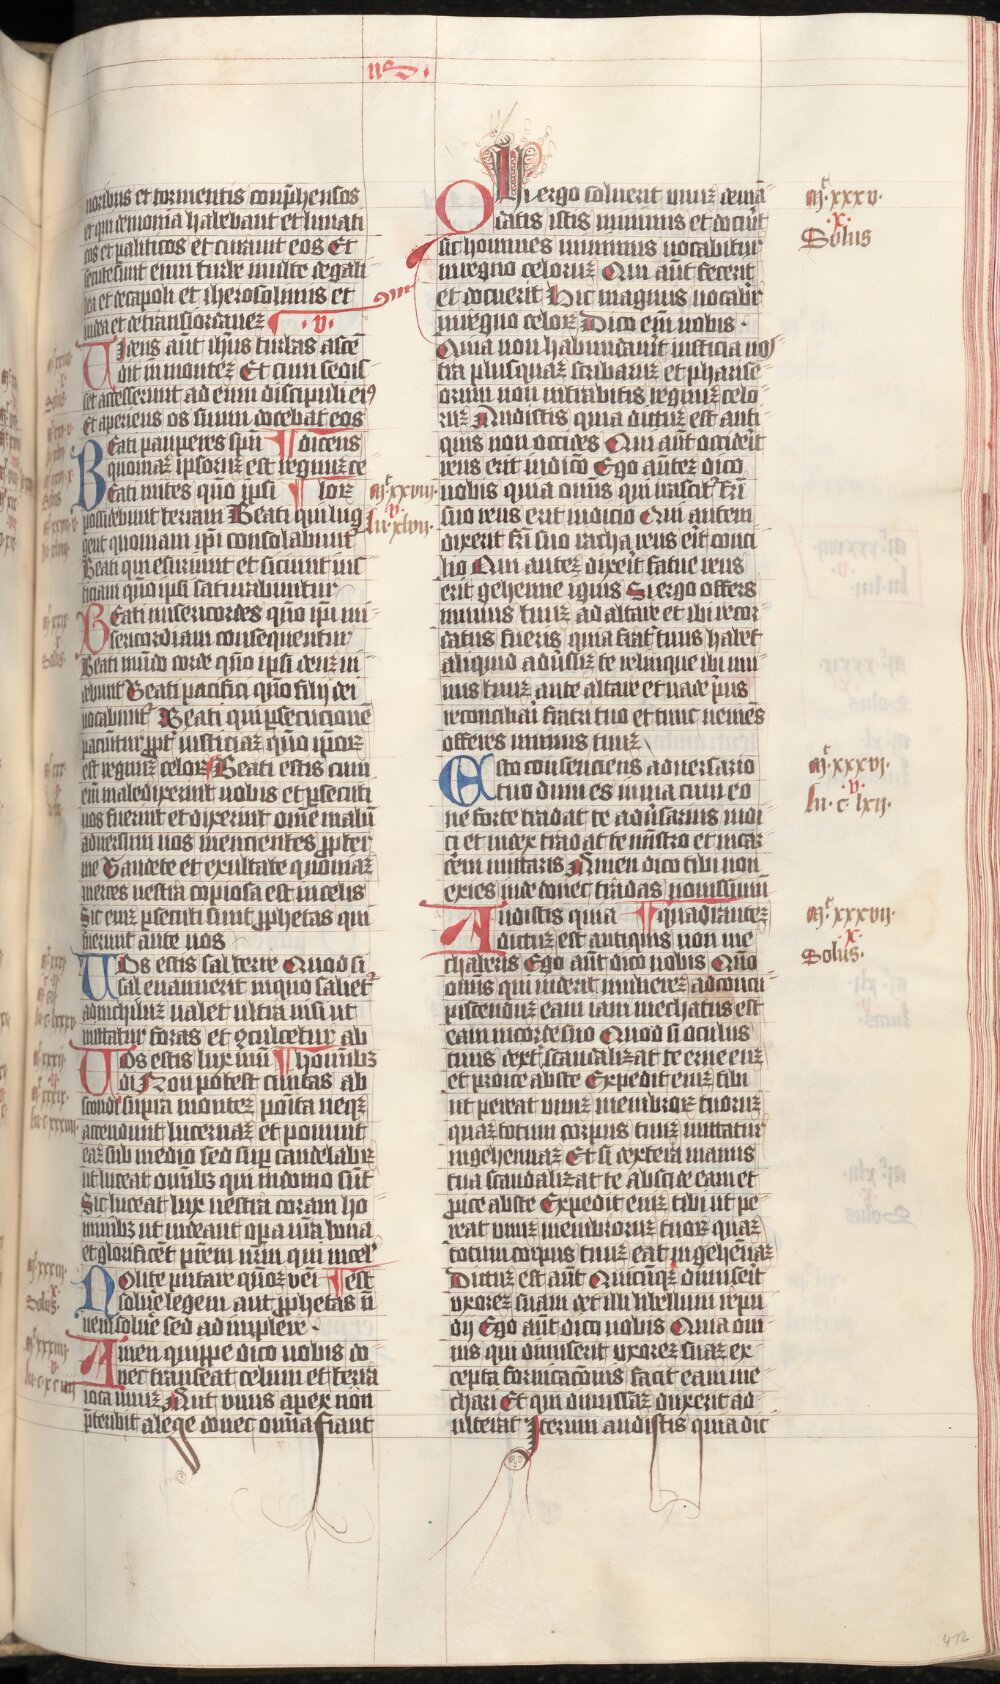 noribus et tormentis cōp̄hensos
et qui demonia habebant et lunati
cos et paliticos et curauit eos Et
secute sunt eum turbe multe de gali
lea et decapoli et iherosolimis et
iudea et de transiordaneꝫ · v ·
Uidens aūt ih̄us turbas asce
dit in monteꝫ Et cum sedis
set accesserunt ad eum discipuli eiꝰ
Et aperiens os suum docebat eos
Beati pauperes spū ¶ dicens
quoniaꝫ ipsoruꝫ est regnuꝫ ce
Beati mites qūo ipsi ¶ loꝝ
possidebunt terram Beati qui lug
gent quoniam ip̄i consolabunt᷑
Beati qui esuriunt et siciunt ius
ticiam qūo ipsi saturabuntur
Beati misericordes qūo ip̄i mi
sericordiam consequentur
Beati mūdo corde qūo ipsi deuꝫ ui
debunt Beati pacifici quo filij dei
uocabunt᷑ Beati qui ꝑsecucionē
paciūtur ꝓpt᷑ iusticiaꝫ qūo ip̄oꝝ
est regnuꝫ celoꝝ Beati estis cum
em̄ maledixerint uobis et ꝑsecuti
uos fuerint et dixerint om̄e malū
aduersum uos mencientes ꝓpter
me Gaudete et exultate quoniaꝫ
merces uestra copiosa est in celis
Sic eniꝫ ꝑsecuti sunt ꝓphetas qui
fuerunt ante uos
Uos estis sal terre Quod si
sal euanuerit in quo saliet᷑
ad nichiluꝫ ualet ultra nisi ut
mittatur foras et ꝯculcetur ab
Uos estis lux mūi ¶ hominibꝫ
di Non potest ciuitas ab
scondi supra monteꝫ posita neqꝫ
accendunt lucernaꝫ et ponunt
eaꝫ sub medio sed suꝑ candelabꝝ
ut luceat om̄ibꝫ qui in domo sūt
Sic luceat lux uestra coram ho
minibꝫ ut uideant oꝑa ur̄a bona
et glorificēt pr̄em ur̄m qui in cel᷑
Nolite putare quoꝫ vēi ¶ est
soluere legem aut ꝓphetas n̄
ueni soluē sed adimplere ·
Amen quippe dico uobis do
nec transeat celum et terra
iota unuꝫ Aut unus apex non
p̄teribit a lege donec omīa fiant
ııᵒ ·
Qui ergo soluerit unuꝫ de mā
datis istis minimis et docūit
sic homines minimus uocabitur
in regno celoruꝫ Qui aūt fecerit
et docuerit Hic magnus uocabit᷑
in regno celoꝝ Dico em̄ uobis
Quia non habundauīt iusticia uos
tra plusquaꝫ scribaruꝫ et pharise
orum non intrabitis regnuꝫ celo
ruꝫ Audistis quia dictuꝫ est anti
quis non occides Qui aūt occiderit
reus erit iudicō Ego aūteꝫ dico
uobis quia omīs qui irascit᷑ fr̄i
suo reus erit iudicio Qui autem
dixerit fr̄i suo racha reus erit conci
lio Qui auteꝫ dixerit fatue reus
erit gehenne ignis Si ergo offers
munus tuuꝫ ad altare et ibi recor
datus fueris quia frat᷑ tuus habet
aliquid aduersuꝫ te relinque ibi mu
nus tuuꝫ ante altare et uade p̄us
reconciliari fratri tuo et tunc ueniēs
offeres munus tuuꝫ
Esto consenciens aduersario
tuo dum es in uia cum eo
ne forte tradat te aduersarius iudi
ci et iudex tradat te mīstro et in car
cērem mittaris Amen dico tibi non
exies inde donec tradas nouissimū
Audistis quia ¶ quadranteꝫ
dictuꝫ est antiquis non me
chaberis Ego aūt dico uobis Qūo
omīs qui uiderit mliereꝫ ad concu
piscenduꝫ eam iam mechatus est
eam in corde suo Quod si oculus
tuus dext᷑ scandalizat te erue euꝫ
et proice abste Expedit eniꝫ tibi
ut pereat unuꝫ membroꝝ tuoruꝫ
quaꝫ totum corpus tuuꝫ mittatur
in gehennaꝫ Et si dextera manus
tua scandalizat te abscide eam et
ꝓice abste Expedit eniꝫ tibi ut pe
reat unuꝫ membroruꝫ tuoꝝ quaꝫ
totum corpus tuuꝫ eat in gehēnaꝫ
Dictuꝫ est aūt Quicūqꝫ dimiserit
vxoreꝫ suam det illi libellum repu
dij Ego aūt dico uobis Quia om
nis qui dimiserit vxoreꝫ suaꝫ ex
cepta fornicacōnis facit eam me
chari Et qui dimissaꝫ duxerit ad
ulterat Iterum audistis quia dic
mͭ·xxxv·
·x·
Solus
mͭ xxviii
·v·
lu·xlvii·
mͭ·xxxvi·
·v·
lu·c·lxii·
mͭ·xxxvii·
·x·
Solus·
412